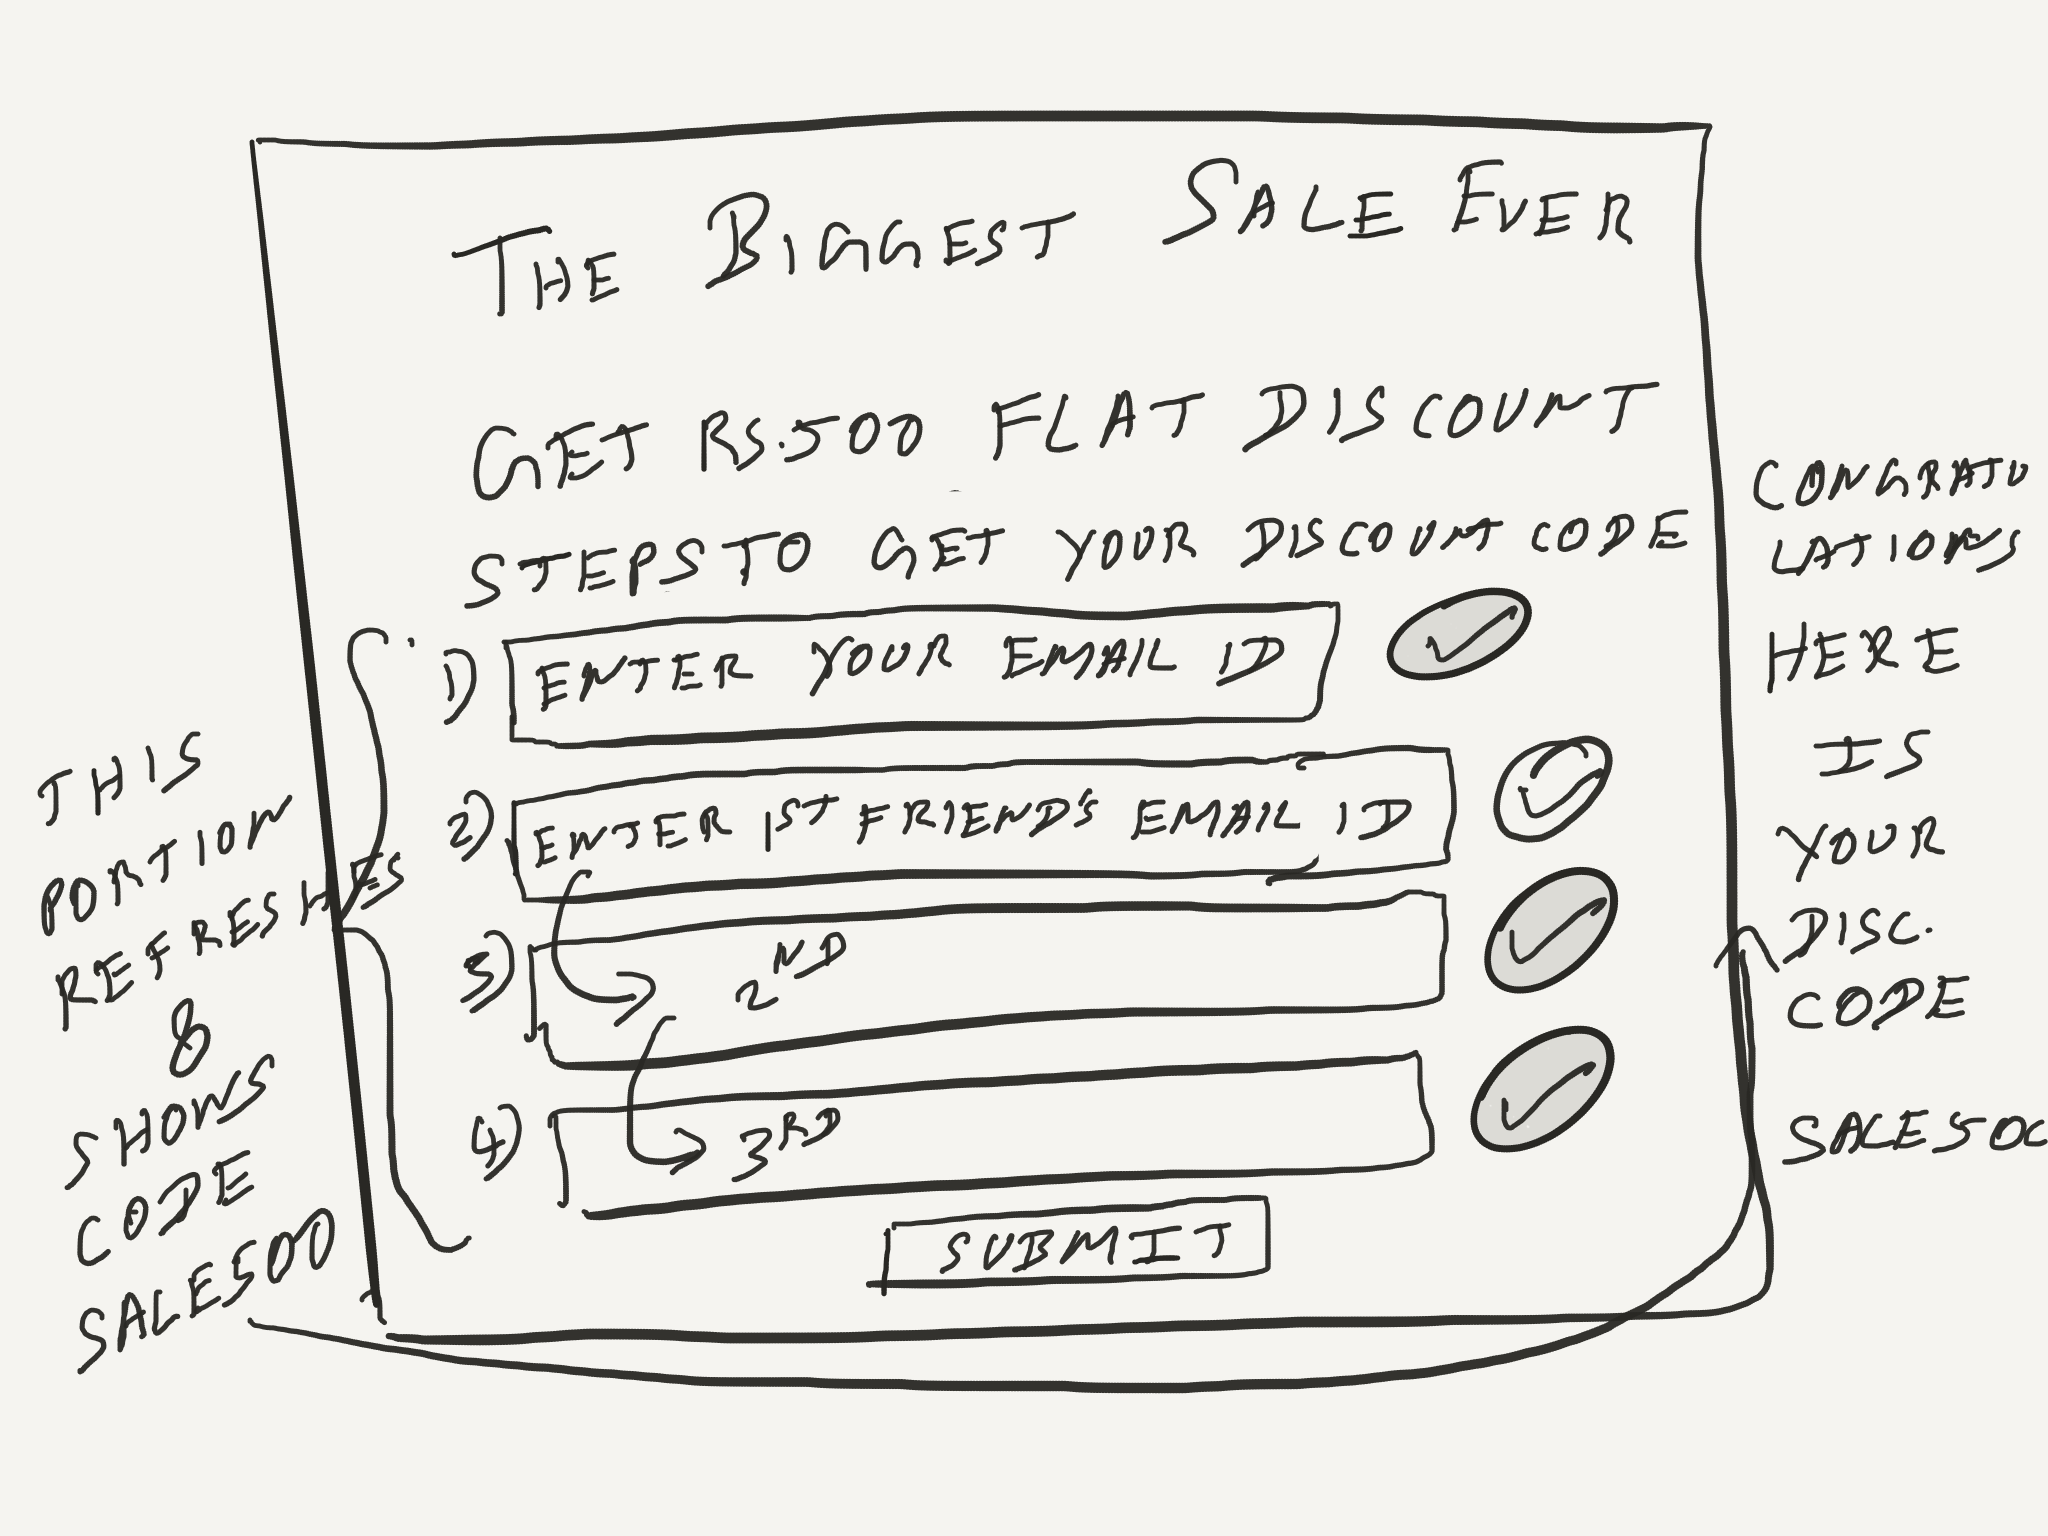 THE BIGGEST SALE EVER
GET RS.500 FLAT DISCOUNT
STEPS TO GET YOUR DISCOUNT CODE
1) ENTER YOUR EMAIL ID
2) ENTER 1ST FRIEND'S EMAIL ID
3) 2ND
4) 3RD
SUBMIT
THIS
PORTION
REFRESHES
&
SHOWS
CODE
SALE500
CONGRATU
LATIONS
HERE
IS
YOUR
DISC.
CODE
SALE500